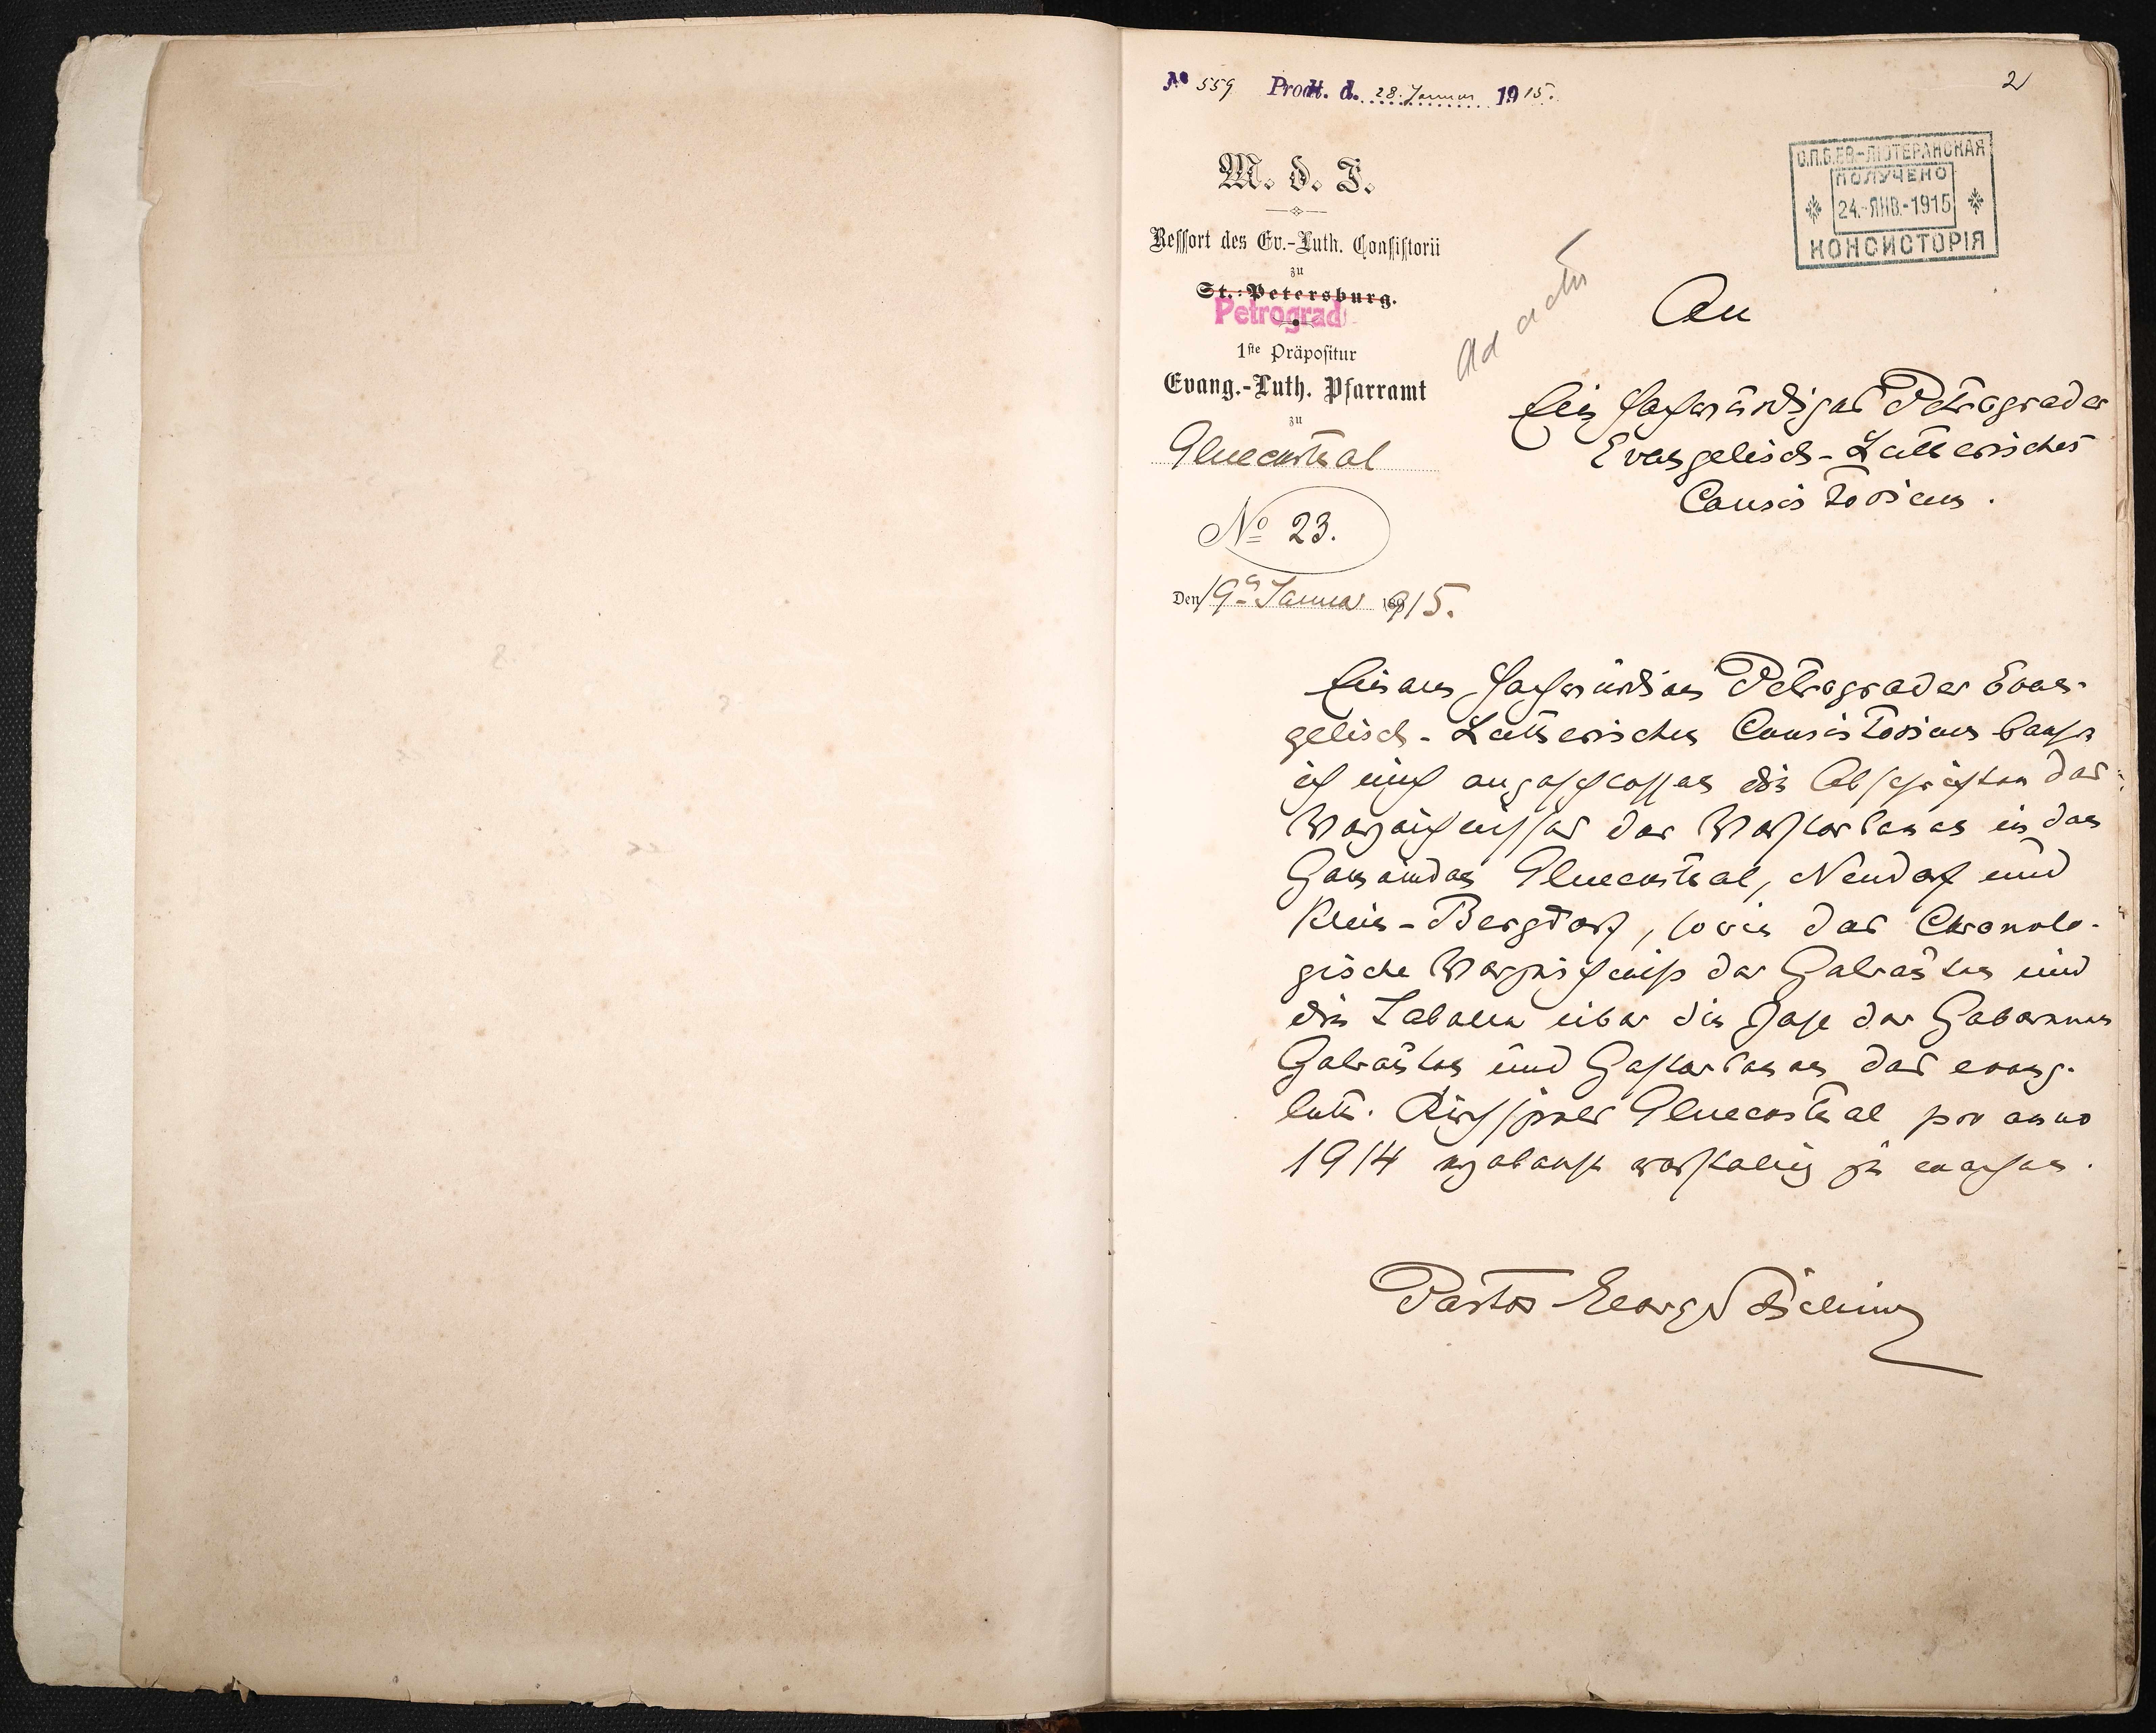 № 559 Prodt. d. 28. Januar 1915.
2
С.П.Б.ЕВ.-ЛЮТЕРАНСКАЯ
ПОЛУЧЕНО
24.-ЯНВ.-1915
КОНСИСТОРІЯ
M. d. I.
Ressort des Ev.-Luth. Consistorii
zu
St.-Petersburg.
Petrograd
1ste Präpositur
Evang.-Luth. Pfarramt
zu
Glueckstal
№ 23.
Den 19 Januar 1915.
Ad acta
An
Ein Hochwürdiges Petrograder
Evangelisch-Lutherisches
Consistorium.
Einem Hochwürdigen Petrograder Evan-
gelisch-Lutherischen Consistorium beehre
ich mich angeschlossen die Abschriften der
Verzeichnisse der Verstorbenen in den
Gemeinden Glueckstal, Neudorf und
Klein-Bergdorf, sowie das Chronolo-
gische Verzeichniss der Getrauten und
die Tabellen über die Zahl der Geborenen
Getrauten und Gestorbenen des evang.
luth. Kirchspiels Glueckstal pro anno
1914 ergebenst vorstellig zu machen.
Pastor Georg